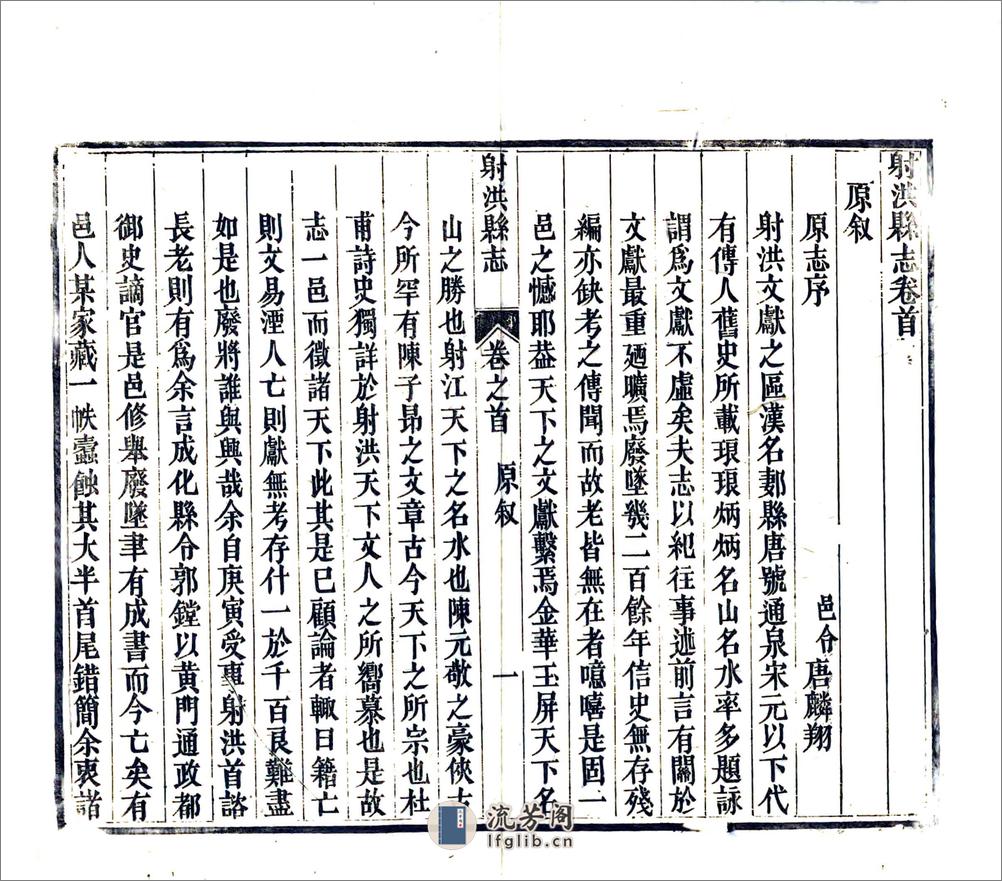 射洪縣志卷首
原叙
原志序
邑令唐麟翔
射洪文獻之區漢名郪縣唐號通泉宋元以下代
有傳人舊史所載琅琅炳炳名山名水率多題詠
謂爲文獻不虛矣夫志以紀往事述前言有關於
文獻最重廼曠焉廢墜幾二百餘年信史無存殘
編亦缺考之傳聞而故老皆無在者噫嘻是固一
邑之憾耶葢天下之文獻繫焉金華玉屏天下名
射洪縣志
卷之首
原叙
一
山之勝也射江天下之名水也陳元敬之豪俠古
今所罕有陳子昂之文章古今天下之所宗也杜
甫詩史獨詳於射洪天下文人之所嚮慕也是故
志一邑而徵諸天下此其是已顧論者輙曰籍亡
則文易湮人亡則獻無考存什一於千百艮難盡
如是也廢將誰與興哉余自庚寅受專射洪首諮
長老則有爲余言成化縣令郭鏜以黃門通政都
御史謫官是邑修舉廢墜聿有成書而今亡矣有
邑人某家藏一帙蠹蝕其大半首尾錯簡余衷諸
流芳阁
lfglib.cn